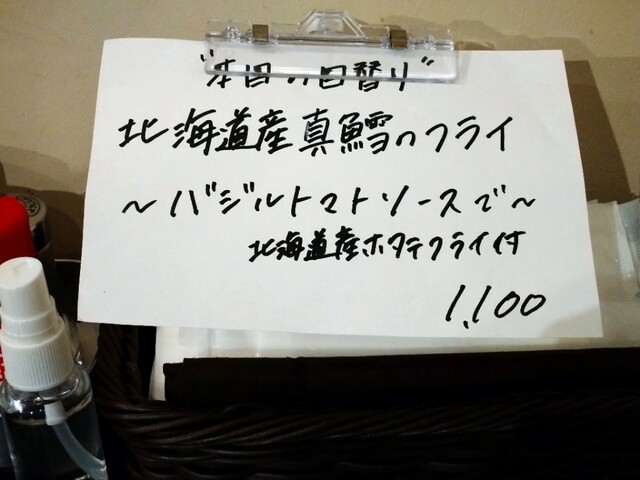 "本日の日替り"
北海道産真鱈のフライ
～バジルトマトソースで～
北海道産ホタテフライ付
1,100